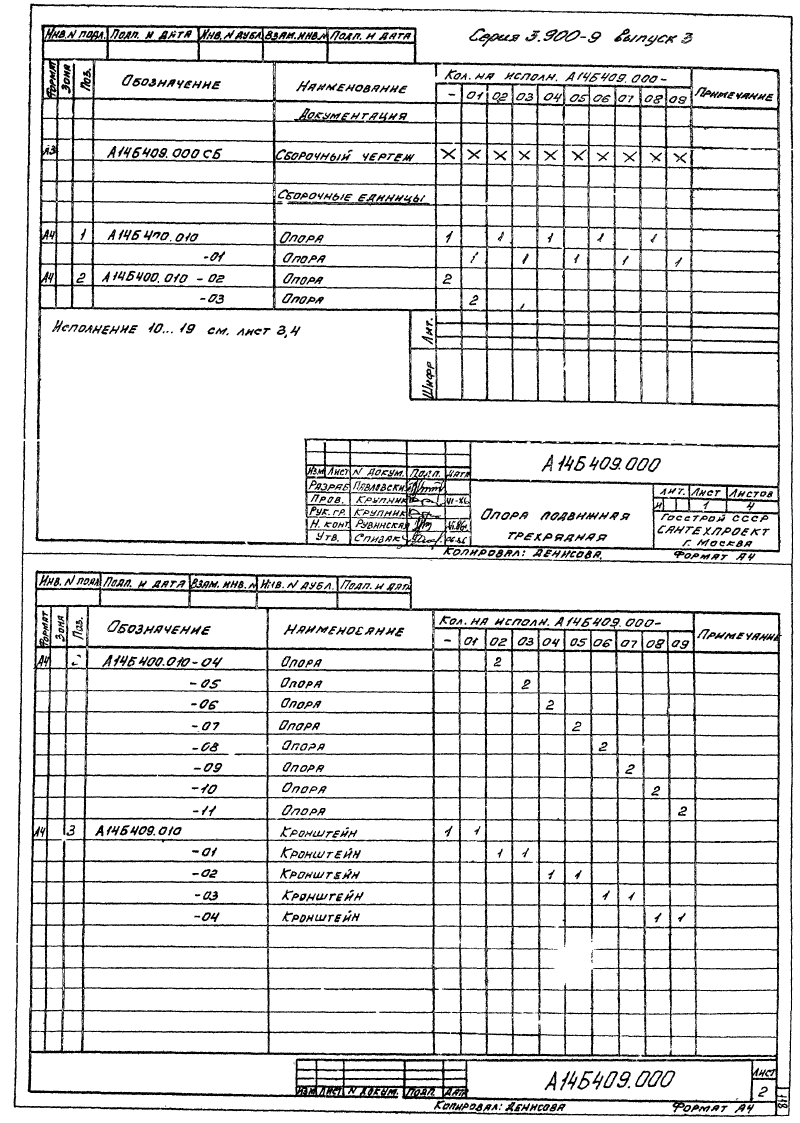 Инв.N подл. Подп. и дата Инв.N дубл. Взам.инв.N Подп. и дата
Серия 3.900-9 выпуск 3
Формат Зона Поз. Обозначение Наименование Кол. на исполн. А14Б409.000- Примечание
- 01 02 03 04 05 06 07 08 09
Документация
А3 А14Б409.000 СБ Сборочный чертеж X X X X X X X X X X
Сборочные единицы
А4 1 А14Б400.010 Опора 1 1 1 1 1
-01 Опора 1 1 1 1 1
А4 2 А14Б400.010 -02 Опора 2
-03 Опора 2
Исполнение 10... 19 см. лист 3,4
Лит.
Шифр
А14Б409.000
Изм Лист N докум. Подп. Дата
Разраб Павловский
Пров. Крупник
Рук.гр. Крупник
Н. конт. Рувинская
Утв. Спивак
Опора подвижная
трехрядная
Лит. Лист Листов
И 1 4
Госстрой СССР
Сантехпроект
г. Москва
Копировал: Денисова. Формат А4
Инв. N подл Подп. и дата Взам. инв. N Инв. N дубл. Подп. и дата
Формат Зона Поз. Обозначение Наименование Кол. на исполн. А14Б409.000- Примечание
- 01 02 03 04 05 06 07 08 09
А4 А14Б400.010-04 Опора 2
-05 Опора 2
-06 Опора 2
-07 Опора 2
-08 Опора 2
-09 Опора 2
-10 Опора 2
-11 Опора 2
А4 3 А14Б409.010 Кронштейн 1 1
-01 Кронштейн 1 1
-02 Кронштейн 1 1
-03 Кронштейн 1 1
-04 Кронштейн 1 1
Изм Лист N докум. Подп. Дата
А14Б409.000
Лист
2
Копировал: Денисова Формат А4